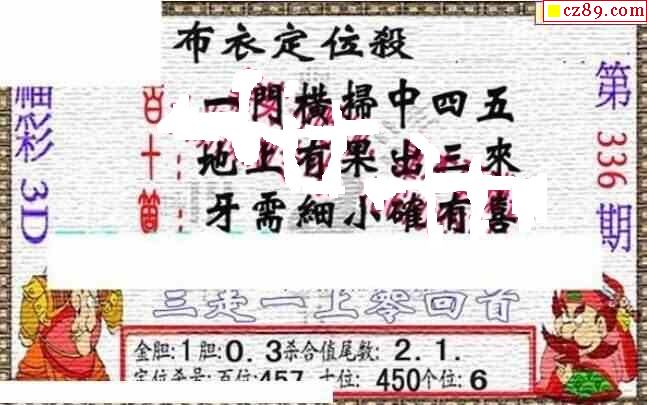 cz89.com
布衣定位殺
福彩3D
百十
第336期
一門橫掃中四五
地上有果出三來
牙需細小確有喜
三走一上零回首
金胆:1胆:0.3杀合值尾数:2.1.
定位杀号:百位:457 十位:450个位:6